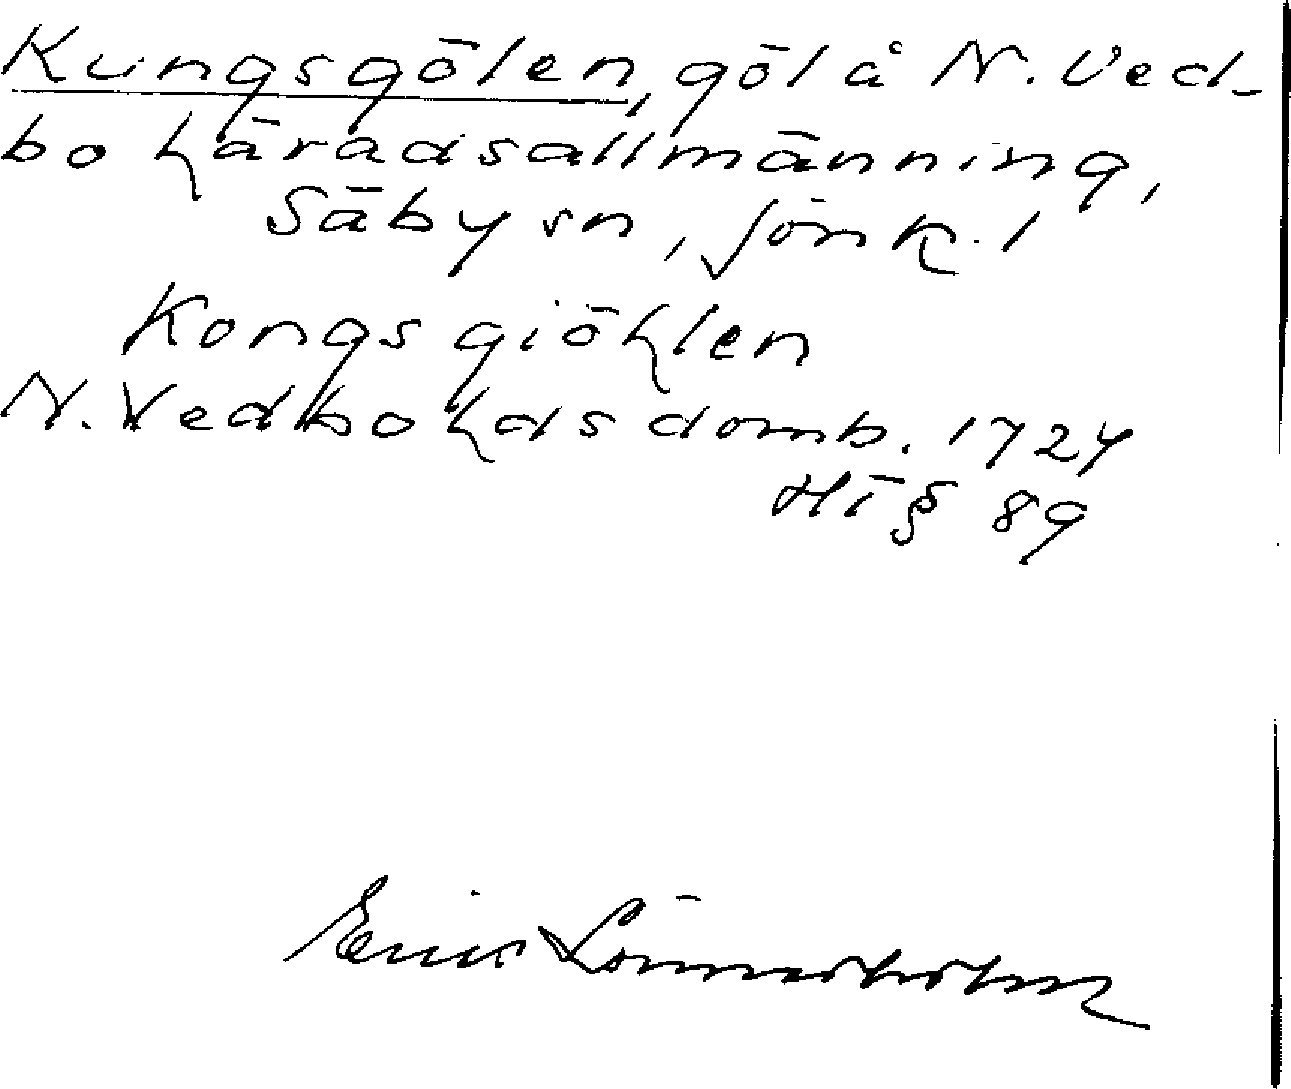 Kungsgölen, göl å N. Ved-
bo häradsallmänning,
Säby sn, Jönk. l
Kongsgiöhlen
N. Vedbo hds domb. 1724
HT § 89
Eric Lönnerholm